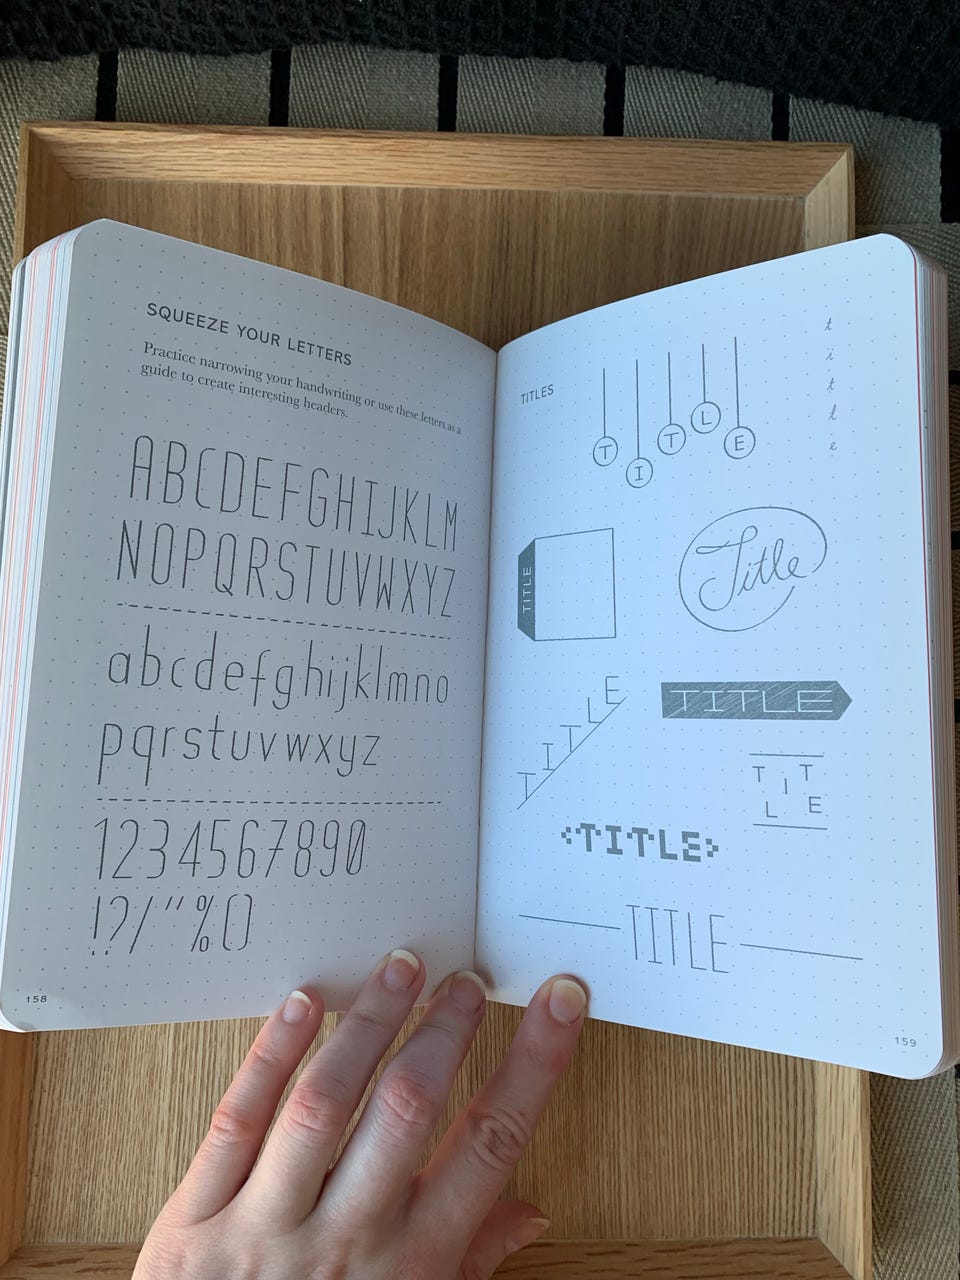 SQUEEZE YOUR LETTERS
Practice narrowing your handwriting or use these letters as a
guide to create interesting headers.
ABCDEFGHIJKLM
NOPQRSTUVWXYZ
abcdefghijklmno
pqrstuvwxyz
1234567890
!?/"%()
158
TITLES
TITLE
title
TITLE
Title
TITLE
TITLE
TITLE
<TITLE>
TITLE
159